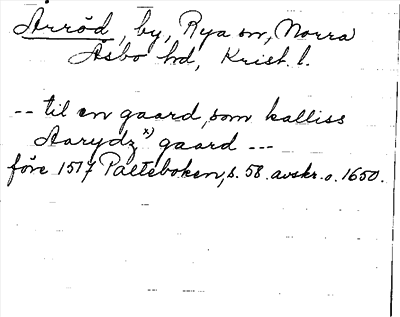 Årröd, by, Rya sn, Norra
Åsbo hd, Krist. l.
-- til en gaard, som kalliss
Aarydz x) gaard ---
före 1517 Palteboken, s. 58. avskr. o. 1650.